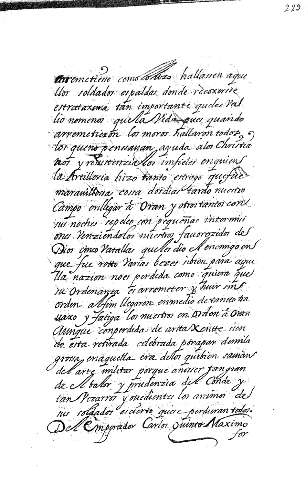 289
arremetiese como lo hizo hallasen aque
llos soldados espaldas donde recoxerse
estrataxema tan importante que les Va
lio no menos que la Vida pues quando
arremetieron los moros hallaron todos
los que no pensauan ayuda a los Christia
nos y resistencia los infieles en quien
la Artilleria hizo tanto estrago que fue
marauillosa cosa dos dias tardo nuestro
Campo en llegar a Oran y otras tantas
sus noches con pequeñas intermisi
ones Venciendo los nuestros fauorezidos de
Dios cinco Vatallas que dio el enemigo en
que fue roto Varias bezes para aque
lla nazion no es perdida como quiera que
su Ordenanza es arremeter y huir sin
orden al fin llegaron en medio de tanto tra
uaxo y fatiga los nuestros en Orden a Oran
Aunque con perdida de arta Xente sien
do esta retirada celebrada por mila
grosa en aquella era de los que bien sauian
del arte militar porque a no ser tan gran
de el balor y prudenzia del Conde y
tan Vizarros y obedientes los animos de
sus soldados es cierto que se perdieran todos.
Del Emperador Carlos Quinto Maximo
for